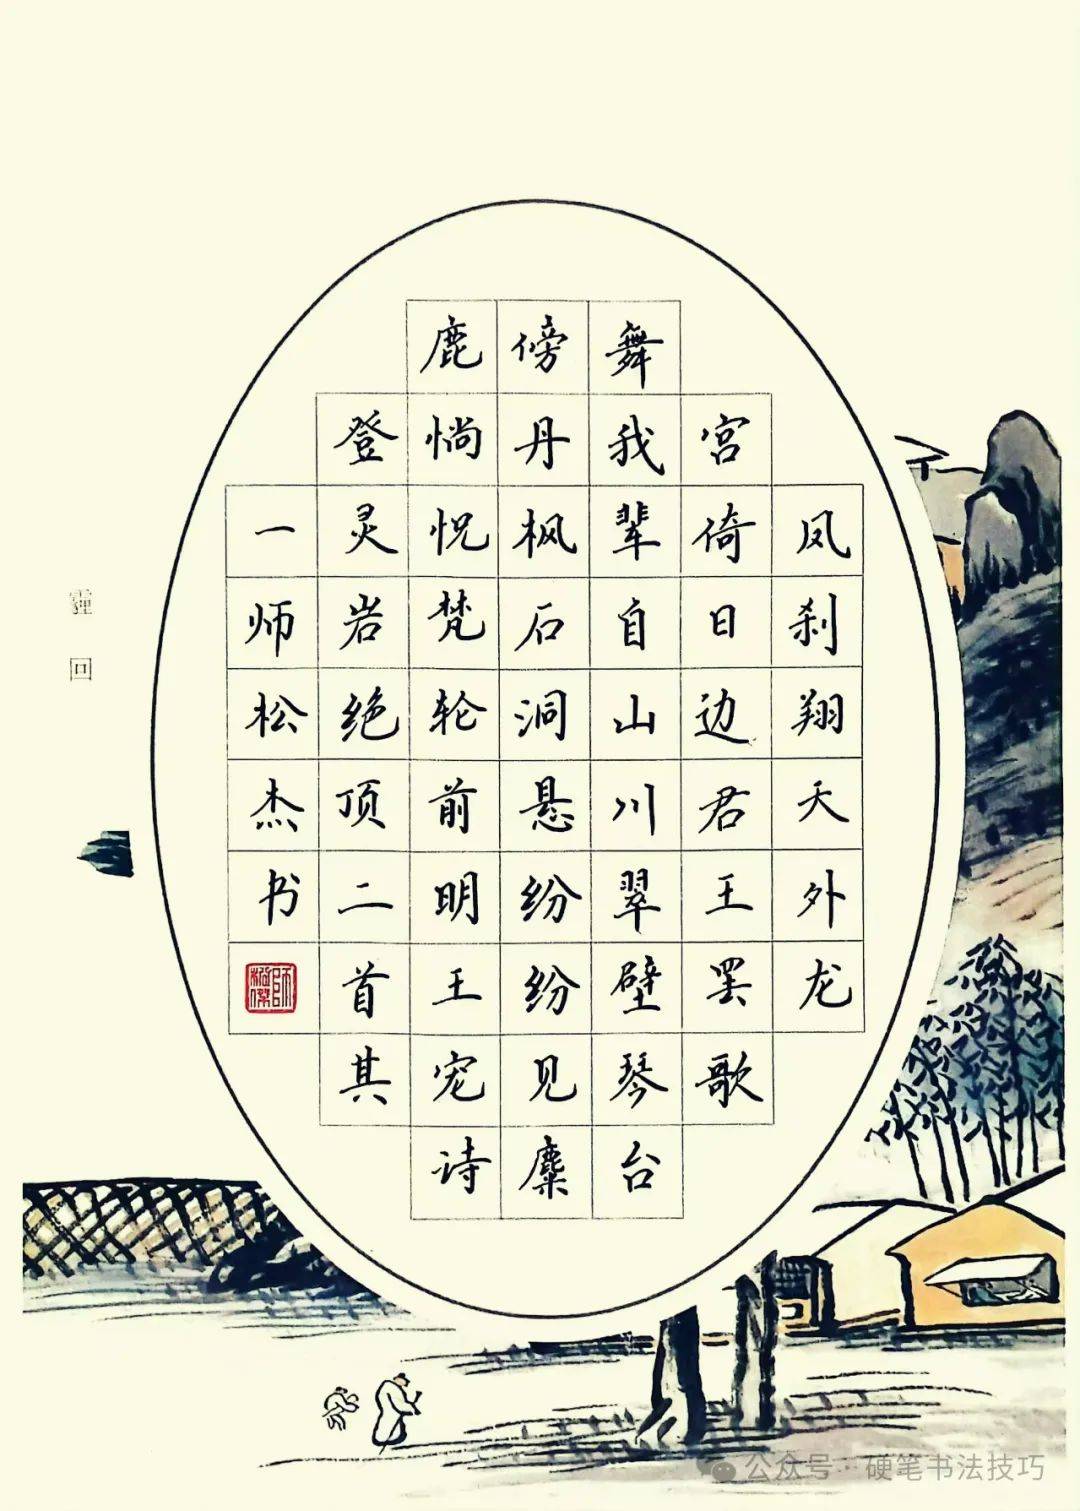 凤刹翔天外龙
宫倚日边君王罢歌
舞我辈自山川翠壁琴台
傍丹枫石洞悬纷纷见麋
鹿惝怳梵轮前明王宠诗
登灵岩绝顶二首其
一师松杰书
師松傑
回
公众号 · 硬笔书法技巧